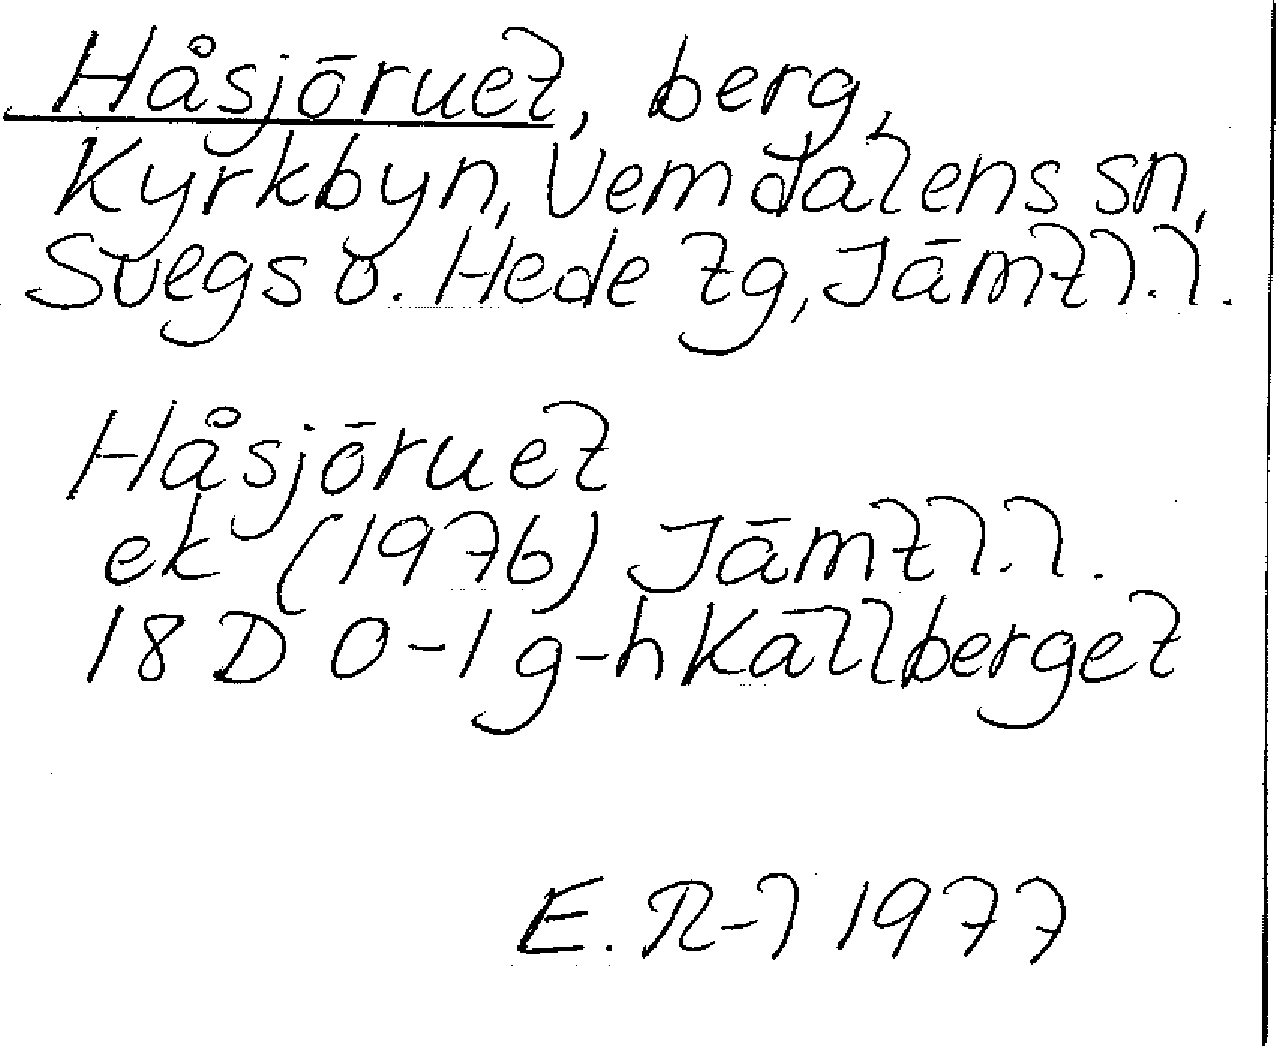 Håsjöruet, berg,
Kyrkbyn, Vemdalens sn,
Svegs o. Hede tg, Jämtl.l.
Håsjöruet
ek (1976) Jämtl.l.
18 D 0-1 g-h Källberget
E. R-l 1977